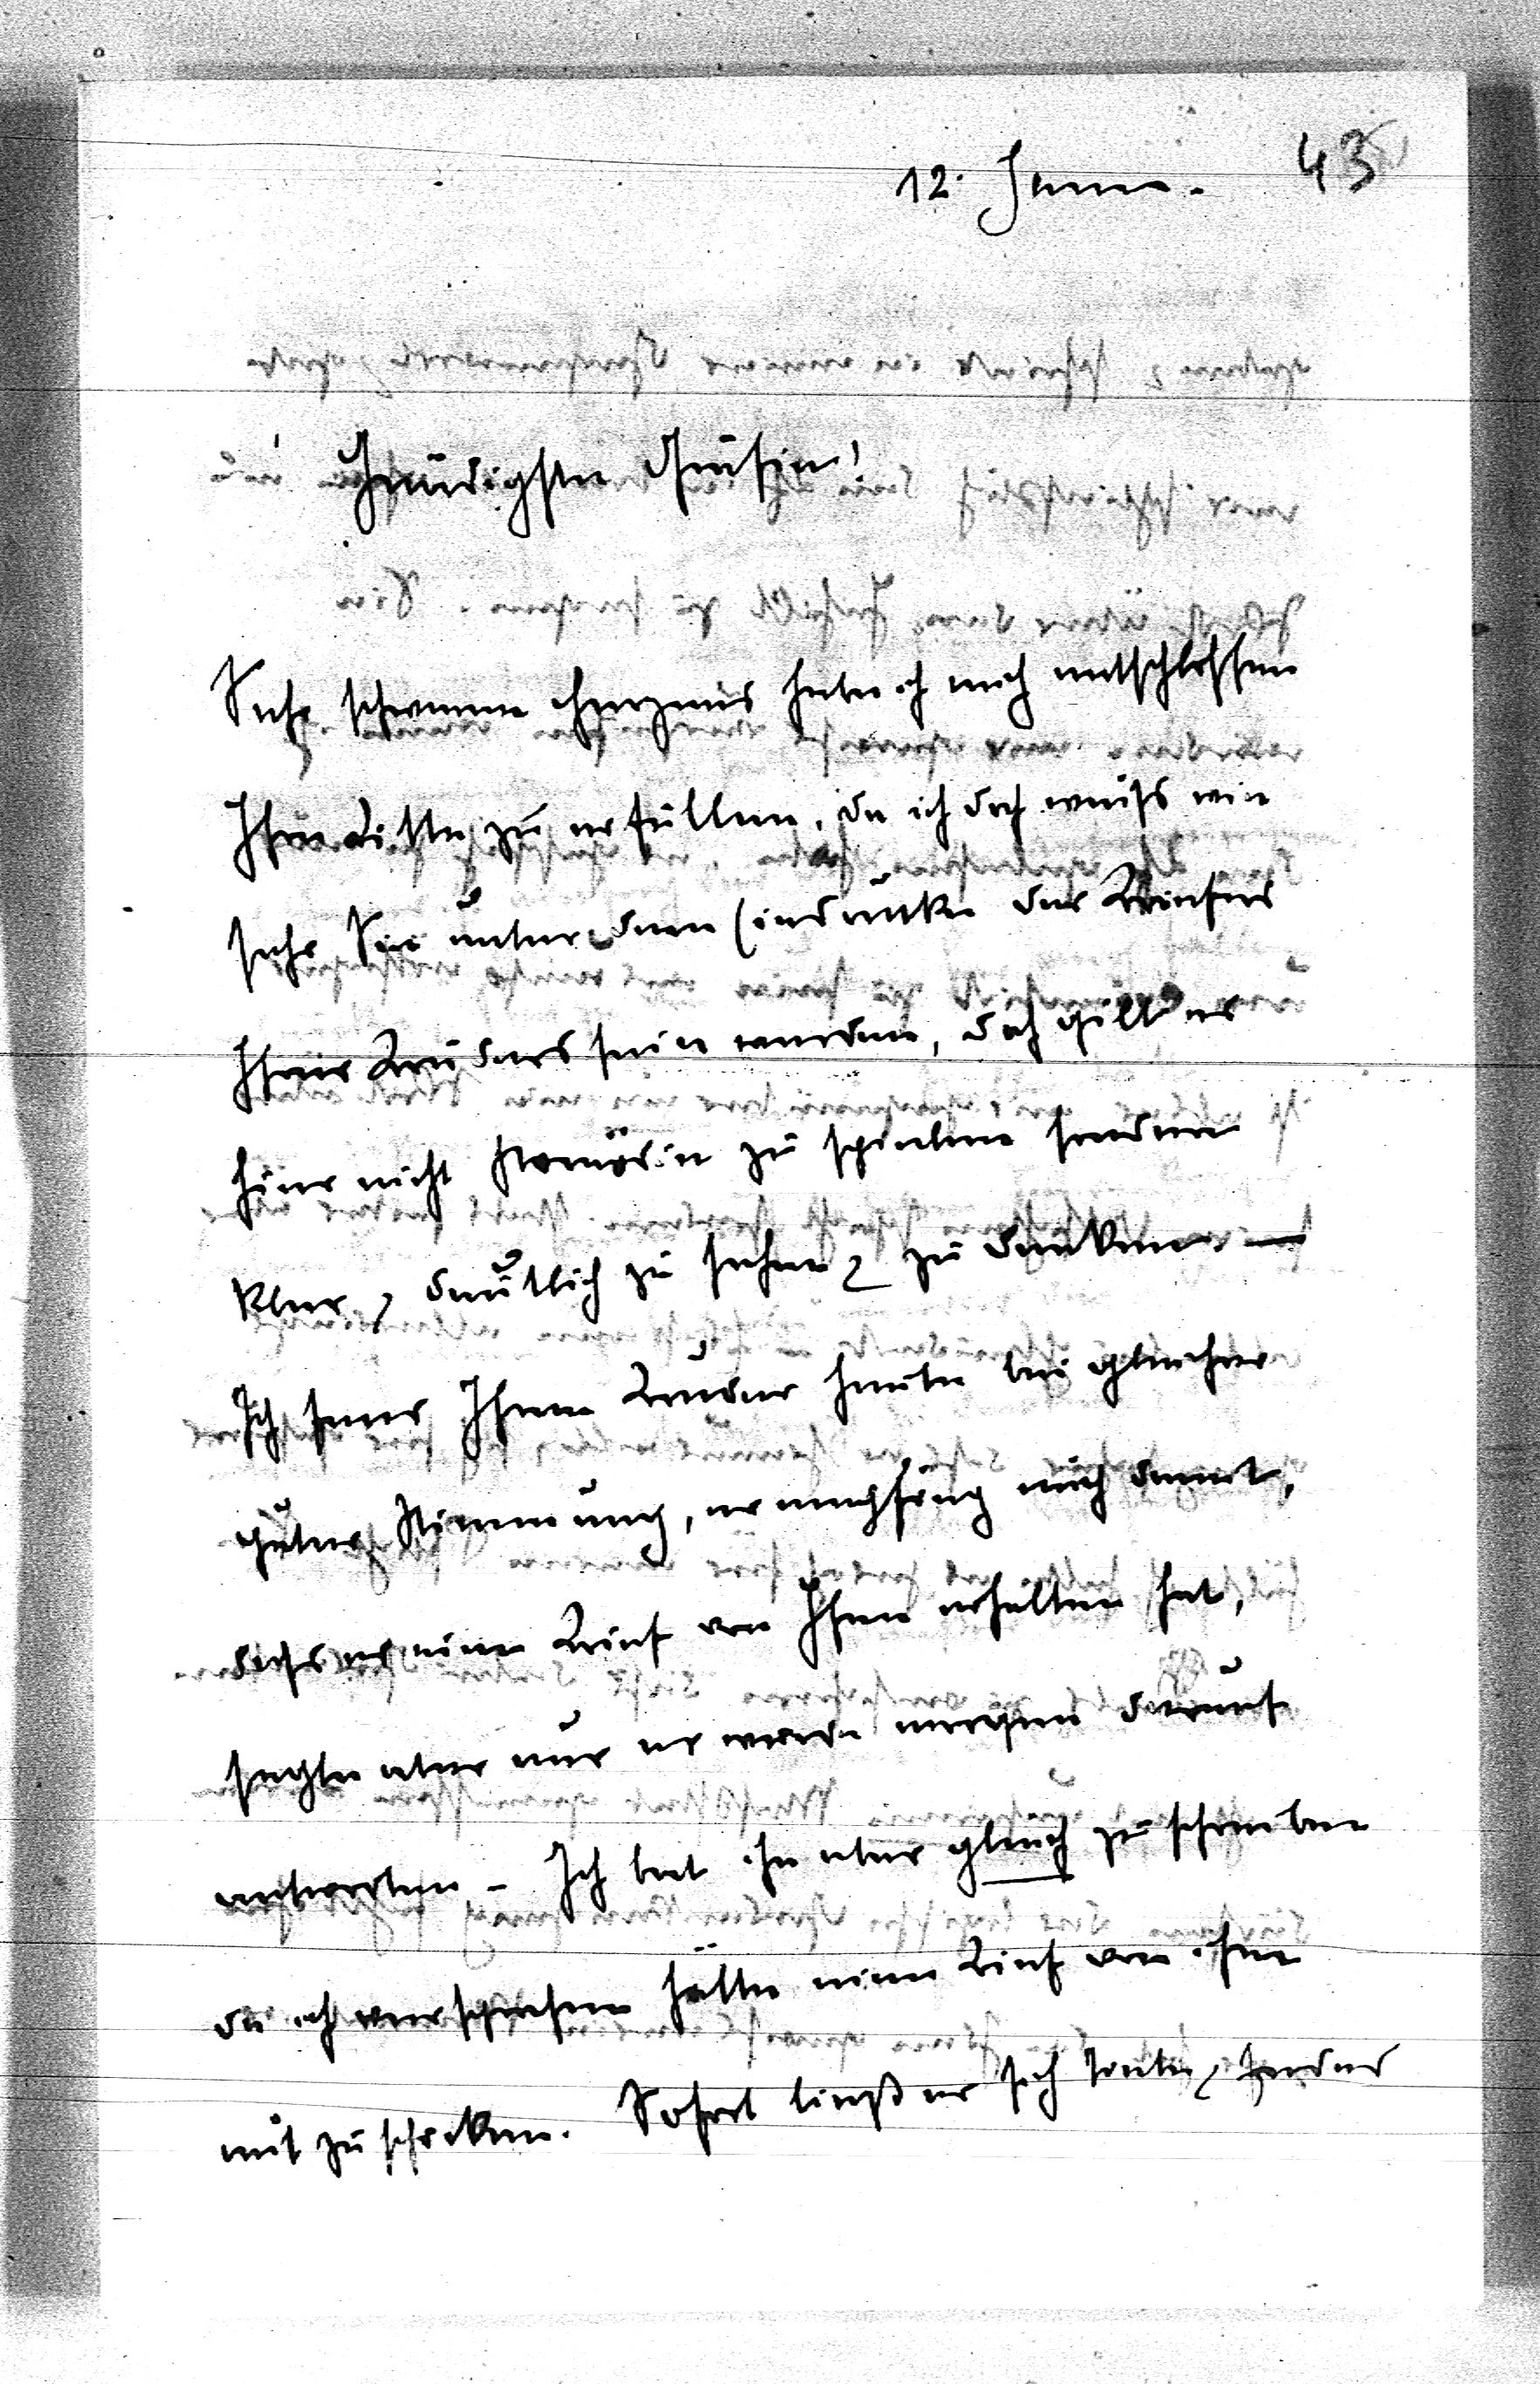 12. Juni. 43
Gnädigste Gräfin!
Sehr schweren Herzens habe ich mich entschlossen
Ihre Bitte zu erfüllen, da ich doch weiß wie
sehr Sie unter dem Eindrucke des Briefes
Ihres Bruders sein werden, doch gilt es
hier nicht Komödie zu spielen sondern
klar & deutlich zu sehen & zu denken. —
Ich fand Ihren Bruder heute bei gleicher
guter Stimmung, er empfing mich damit,
dass er einen Brief von Ihnen erhalten hat,
sagte aber nur er werde morgen darauf
antworten. – Ich bat ihn aber gleich zu schreiben
da ich versprochen hätte einen Brief von ihm
mit zu schicken. Sofort ließ er sich Tinte & Feder